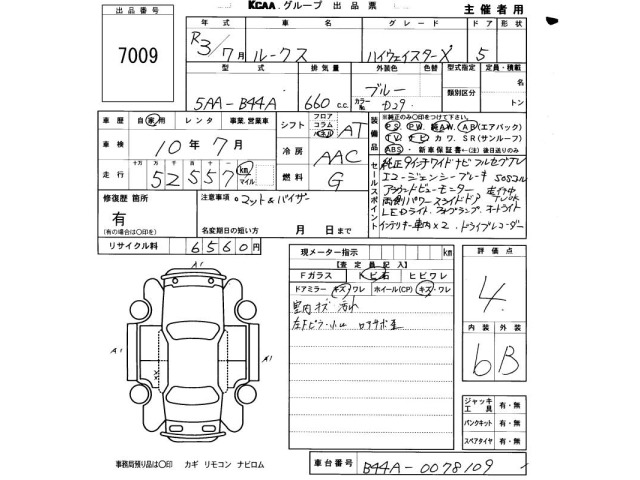 出品番号
7009
KCAA グループ 出品票
主催者用
年式 車名 グレード ドア
R3/7月 ルークス ハイウェイスターX 5
型式 排気量 外装色 色替 型式指定 定員・積載
5AA-B44A 660 c.c. ブルー カラーNo. D29 類別区分 名 トン
車歴 自家用 レンタ 事業、営業車
車検 10年7月
走行 十万 万 千 百 十 52557 km マイル
シフト フロア コラム AT
冷房 AAC
燃料 G
装備品
※純正のみ〇印をつけて下さい。
PS PW 純AW AB(エアバック)
TV ナビ カワ SR(サンルーフ)
ABS ・ 新車保証書-(注)後日送りのみ
セールスポイント
純正9インチワイドナビ フルセグTV
エマージェンシーブレーキ SOSコール
アラウンドビューモニター
両側パワースライドドア
LEDライト フォグランプ オートライト
インテリキー車内×2 ドライブレコーダー
修復歴 箇所
有
(有の場合は〇印を)
注意事項 マット&バイザー
名変期日の短い方 月 日まで
リサイクル料 6560円
現メーター指示 km
【査定員記入】
Fガラス トビ石 ヒビワレ
ドアミラー キズ・ワレ ホイール(CP) キズ・ワレ
室内キズ 汚れ
評価点
4
内装 外装
6 B
A1
A1
A1
××
ジャッキ 工具 有・無
パンクキット 有・無
スペアタイヤ 有・無
事務局預り品は〇印 カギ リモコン ナビロム
車台番号 B44A-0078109